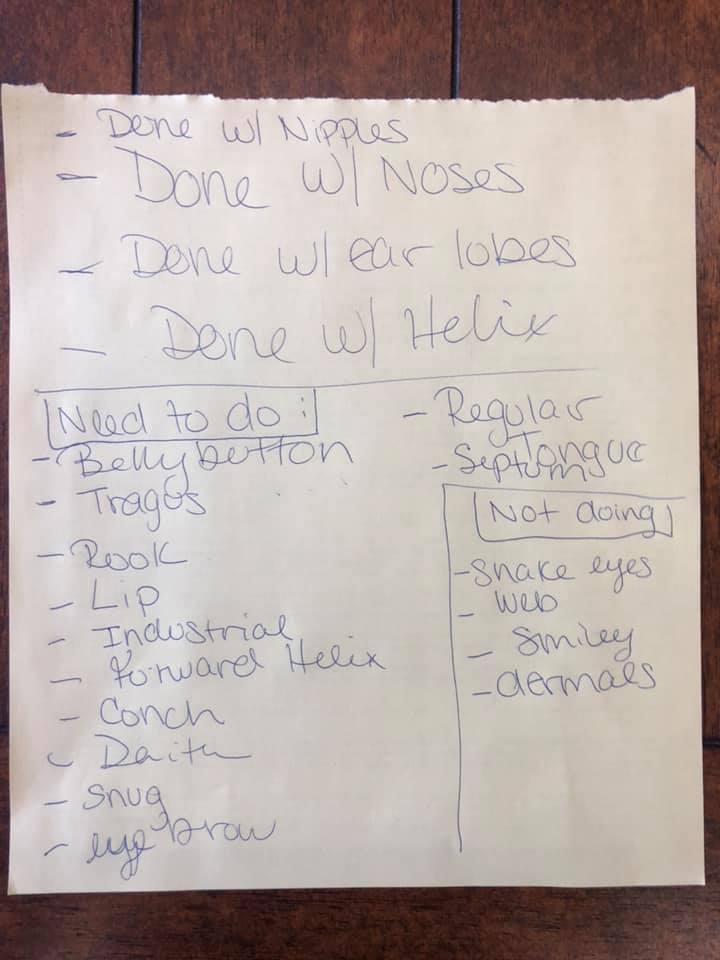 - Done w/ Nipples
- Done w/ Noses
- Done w/ ear lobes
- Done w/ Helix
Need to do:
- Belly button
- Tragus
- Rook
- Lip
- Industrial
- forward Helix
- Conch
- Daith
- Snug
- eye brow
- Regular Tongue
- Septum
Not doing
- Snake eyes
- web
- Smiley
- dermals